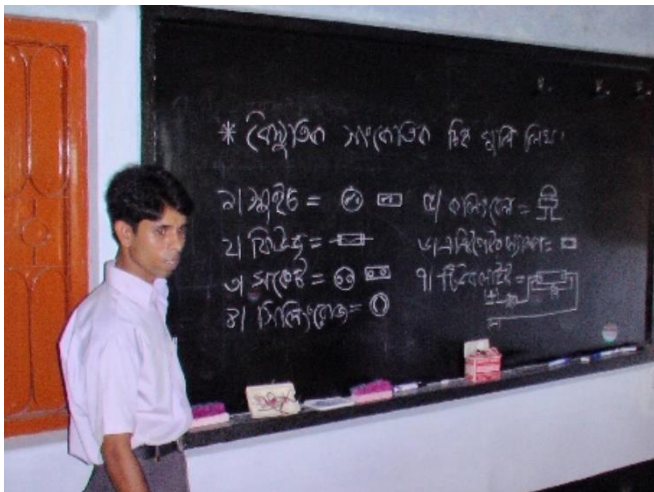 * বৈদ্যুতিক সাংকেতিক চিহ্ন গুলি লিখ।
১। সুইচ =
২। ফিউজ =
৩। সকেট =
৪। সিলিংরোজ =
৫। কলিংবেল =
৬।
৭। টিউবলাইট =